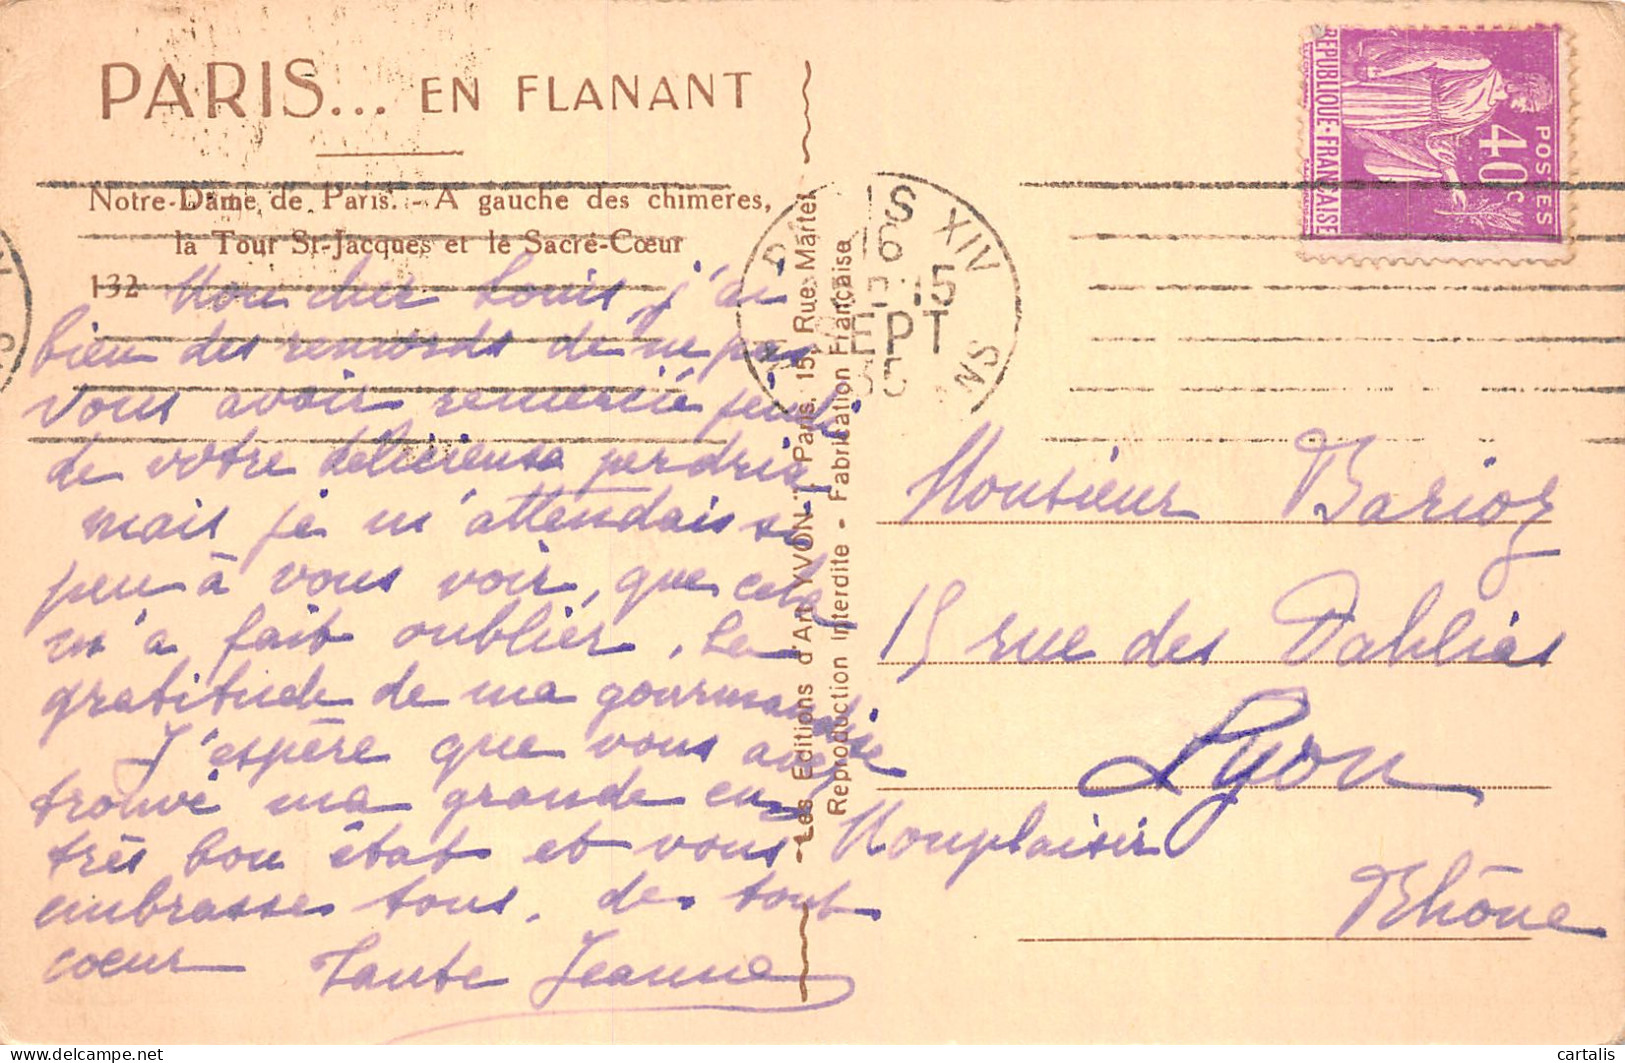 PARIS... EN FLANANT
Notre-Dame de Paris. - A gauche des chimères,
la Tour St-Jacques et le Sacré-Cœur
132
Mon cher Louis, j'ai
bien des remords de ne pas
vous avoir remercié jeudi
de votre délicieuse perdrix
mais je m'attendais si
peu à vous voir, que cela
m'a fait oublier. La
gratitude de ma gourmandise
J'espère que vous avez
trouvé ma grande en
très bon état et vous
embrasse tous. de tout
cœur Tante Jeanne
- Les Editions d'Art YVON - Paris, 15, Rue Martel
Reproduction Interdite - Fabrication Française
PARIS XIV
16
H 15
SEPT
35
REPUBLIQUE · FRANÇAISE
POSTES
40c
Monsieur Barioz
15 rue des Dahlias
Lyon
Monplaisir
Rhône
cartalis